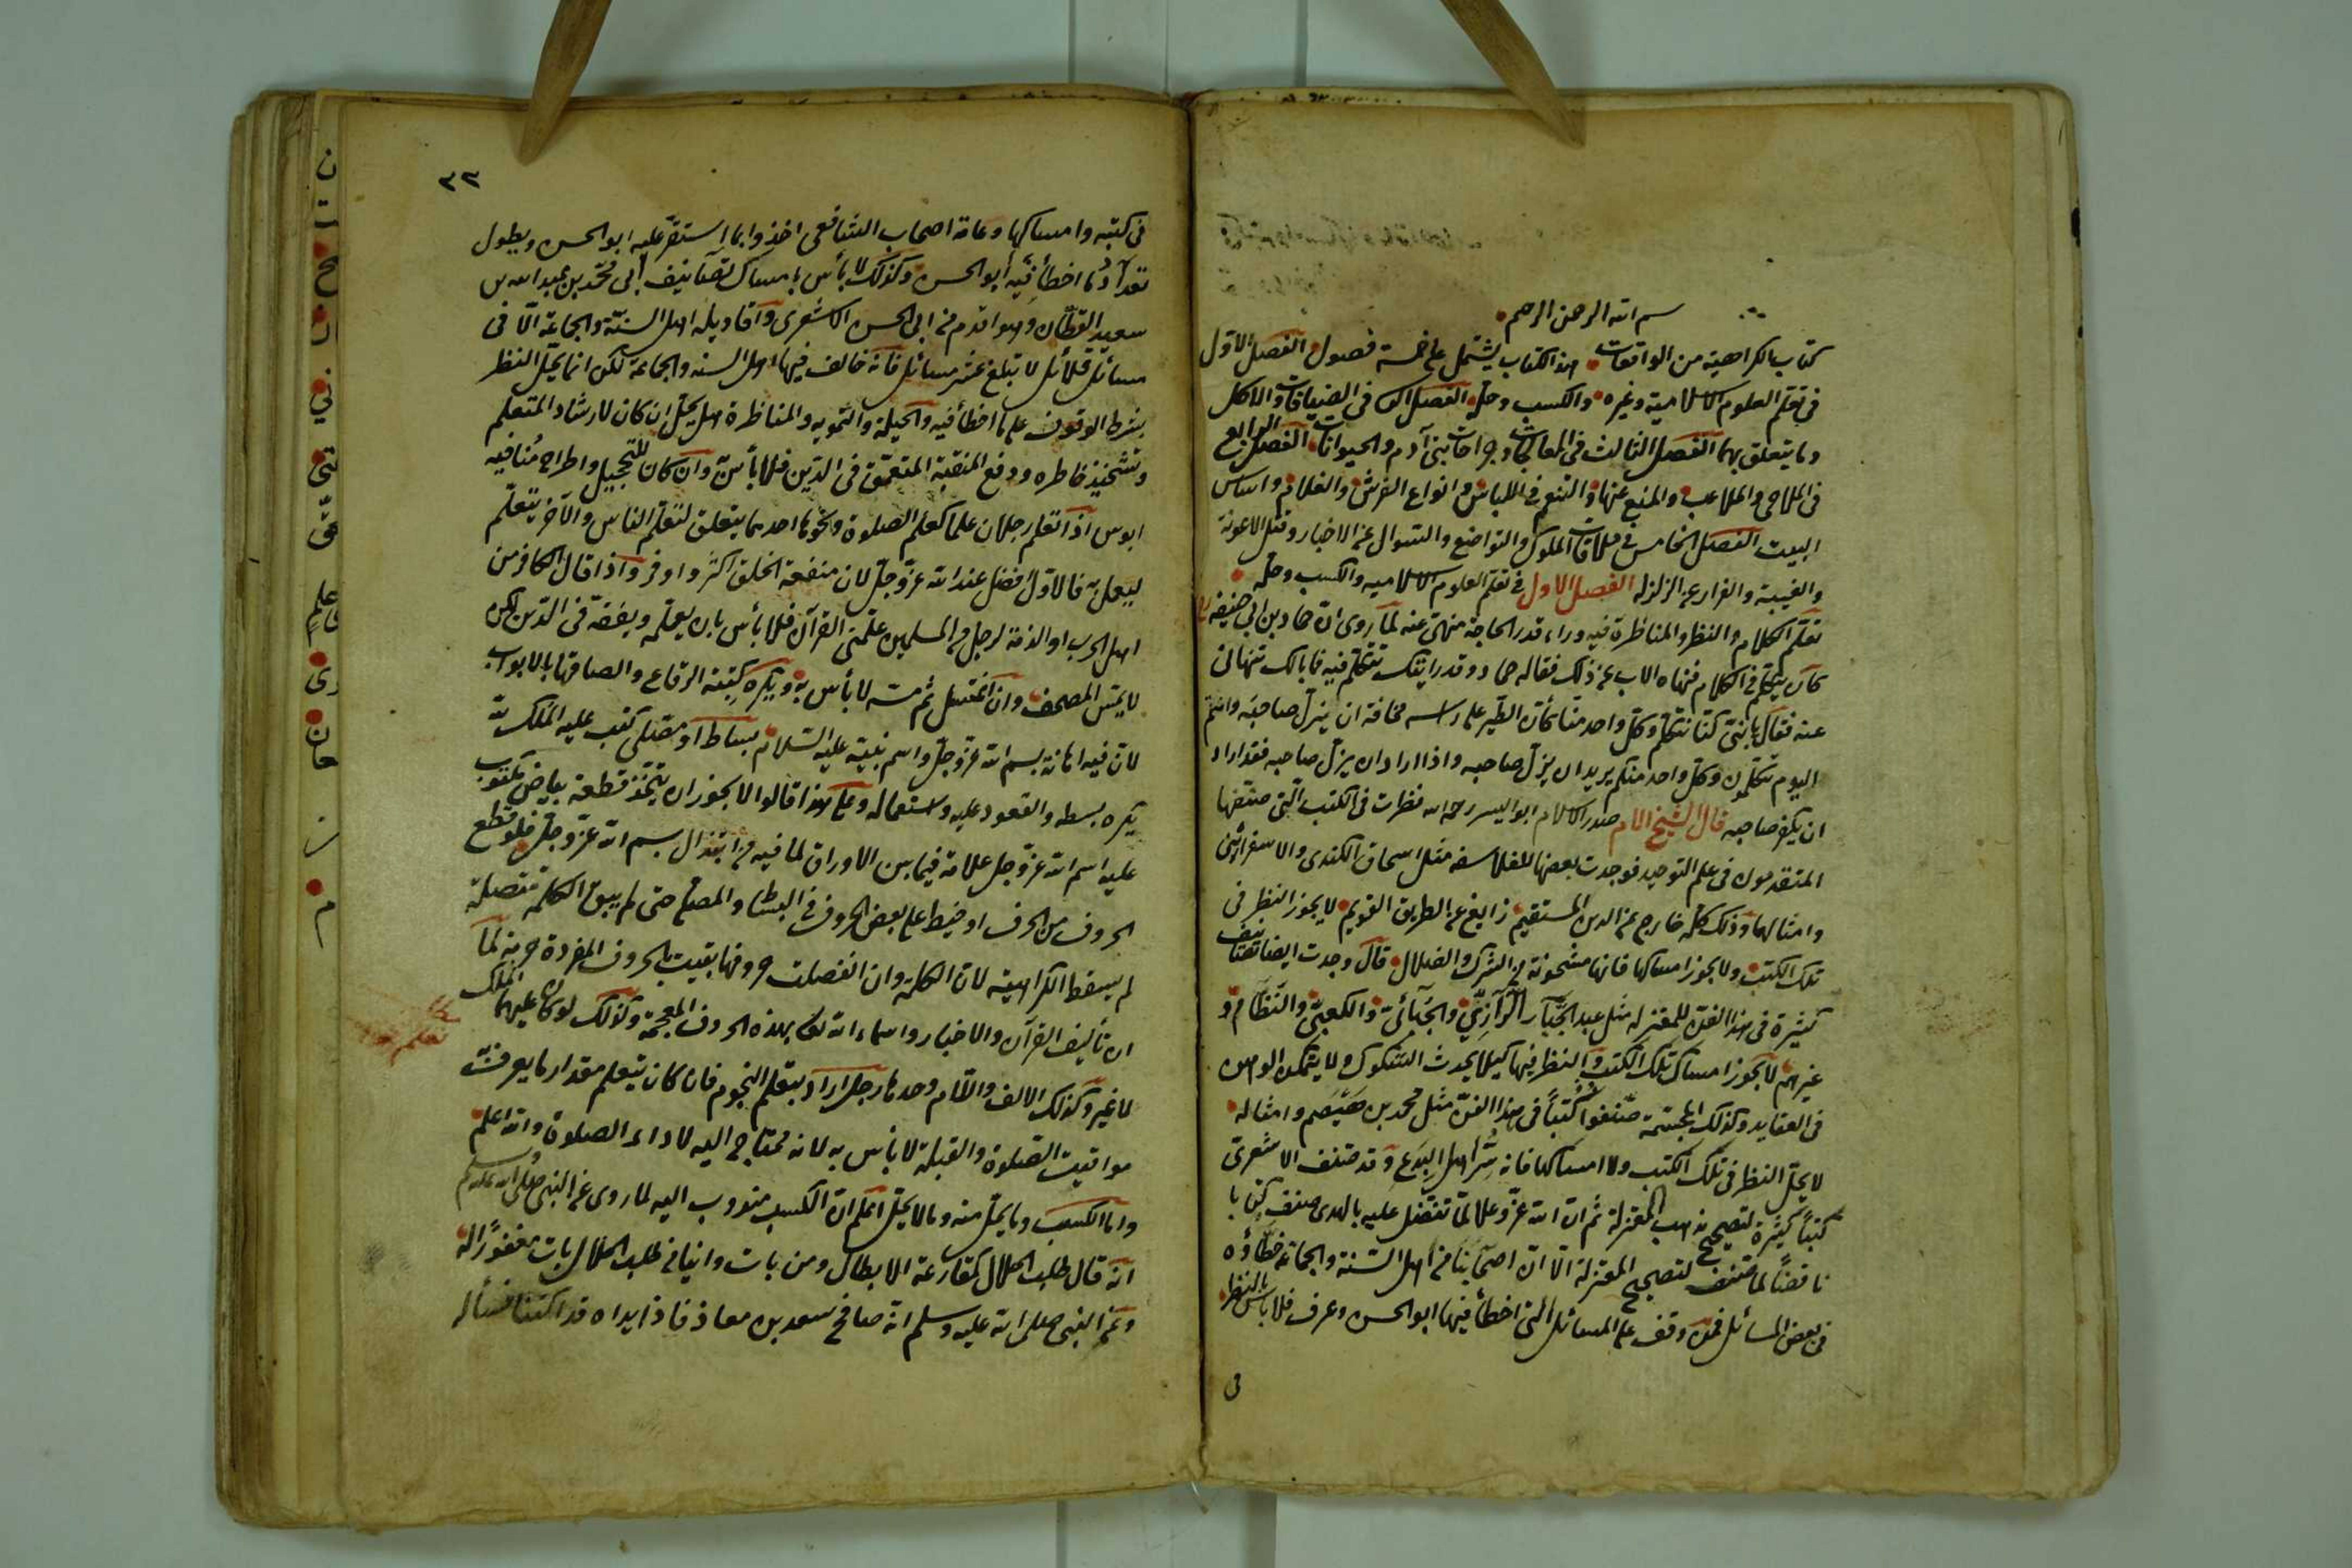 بسم الله الرحمن الرحيم
كتاب الكراهية من الواقعات هذا الكتاب يشتمل على خمسة فصول الفصل الاول
في تعلم العلوم الاسلامية وغيره والكسب وحله الفصل الثاني في الضيافات والاكل
وما يتعلق بهما الفصل الثالث في المعالجات وجراحات بني آدم والحيوانات الفصل الرابع
في الملاهي والملاعب والمنع عنها والتنعم في اللباس وانواع الفرش والغلام واساس
البيت الفصل الخامس في ملاقات الملوك والتواضع والسوال عن الاخبار وقتل الاعونة
والغيبة والفرار عن الزلزلة الفصل الاول في تعلم العلوم الاسلامية والكسب وحله
تعلم الكلام والنظر والمناظرة فيه وراء قدر الحاجة منهى عنه لما روى ان حماد بن ابي حنيفة رح
كان يتكلم في الكلام فنهاه الاب عن ذلك فقال له حماد وقد رايتك تتكلم فيه فما بالك تنهاني
عنه فقال يا بني كنا نتكلم وكل واحد منا كأن الطير على راسه مخافة ان يزل صاحبه وانتم
اليوم تتكلمون وكل واحد منكم يريد ان يزل صاحبه واذا اراد ان يزل صاحبه فقد اراد
ان يكفر صاحبه قال الشيخ الامام صدر الاسلام ابو اليسر رحمه الله نظرت في الكتب التي صنفها
المتقدمون في علم التوحيد فوجدت بعضها للفلاسفة مثل اسحاق الكندي والاسفرائني
وامثالهما وذلك كله خارج عن الدين المستقيم زايغ عن الطريق القويم لا يجوز النظر في
تلك الكتب ولا يجوز امساكها فانها مشحونة من الشرك والضلال قال وجدت ايضا تصانيف
كثيرة في هذا الفن للمعتزلة مثل عبد الجبار الرازي والجبائي والكعبي والنظام و
غيرهم لا يجوز امساك تلك الكتب والنظر فيها كيلا يحدث الشكوك ولا يتمكن الوهن
في العقايد وكذلك المجسمة صنفوا كتبا في هذا الفن مثل محمد بن هيصم وامثاله
لا يحل النظر في تلك الكتب ولا امساكها فانه شر اهل البدع وقد صنف الاشعري
كتبا كثيرة لتصحيح مذهب المعتزلة ثم ان الله عز وعلا لما تفضل عليه بالهدى صنف كتابا
ناقضا لما صنف لتصحيح المعتزلة الا ان اصحابنا من اهل السنة والجماعة خطاؤه
في بعض المسائل فمن وقف على المسائل التي اخطأ فيها ابو الحسن وعرف فلا باس بالنظر
في
٣٢
في كتبه وامساكها وعامة اصحاب الشافعي اخذوا بما استقر عليه ابو الحسن ويطول
تعداد ما اخطأ فيه ابو الحسن وكذلك لا بأس بامساك تصانيف ابي محمد بن عبد الله بن
سعيد القطان وهو اقدم من ابي الحسن الاشعري واقاويله اهل السنة والجماعة الا في
مسائل قلائل لا تبلغ عشر مسائل فانه خالف فيها اهل السنه والجماعة لكن انما يحل النظر
بشرط الوقوف على ما اخطأ فيه والحيلة والتمويه والمناظرة هل يحل ان كان لارشاد المتعلم
وتشحيذ خاطره ودفع المتعمق في الدين فلا بأس وان كان للتخجيل واطراح
اذا تعلم رجلان علما كعلم الصلوة ونحوها احدهما يتعلق لتعلم الناس والآخر يتعلم
ليعمل به فالاول افضل عند الله عز وجل لان منفعة الخلق اكثر واوفر واذا قال الكافر من
اهل الحرب او الذمة لرجل من المسلمين علمني القرآن فلا بأس بان يعلمه ويفقه في الدين لكن
لا يمس المصحف وان اغتسل ثم مسه لا بأس به ويكره كتبة الرقاع والصاقها بالابواب
لان فيه اهانة بسم الله عز وجل واسم نبيه عليه السلام بساط او مصلى كتب عليه الملك لله
يكره بسطه والقعود عليه واستعماله وعلى هذا قالوا لا يجوز ان يتخذ قطعة بياض مكتوب
عليه اسم الله عز وجل علامة فيما بين الاوراق لما فيه من ابتذال بسم الله عز وجل فلو قطع
الحروف من الحرف او خيط على بعض الحروف في البساط والمصلى حتى لم يبق الكلمة متصلة
لم يسقط الكراهية لان الكلمة وان انفصلت حروفها بقيت الحروف المفردة حرمة لما
ان تأليف القرآن والاخبار واسماء الله تعالى بهذه الحروف المعجمة وكذلك لو كان عليهما الملك
لا غير وكذلك الالف واللام وحدها رجل اراد بتعلم النجوم فان كان يتعلم مقدار ما يعرف به
مواقيت الصلوة والقبلة لا بأس به لانه محتاج اليه لاداء الصلوة والله اعلم
واما الكسب وما يحل منه وما لا يحل اعلم ان الكسب مندوب اليه لما روى عن النبي صلى الله عليه وسلم
انه قال طلب الحلال كمقارعة الابطال ومن بات وانيا في طلب الحلال بات مغفورا له
وعن النبي صلى الله عليه وسلم انه صافح سعد بن معاذ فاذا يداه قد اكتنبا فسأله